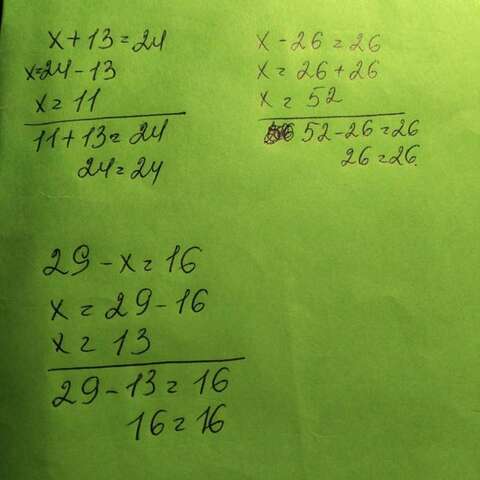 x + 13 = 24
x = 24 - 13
x = 11
11 + 13 = 24
24 = 24
x - 26 = 26
x = 26 + 26
x = 52
52 - 26 = 26
26 = 26.
29 - x = 16
x = 29 - 16
x = 13
29 - 13 = 16
16 = 16